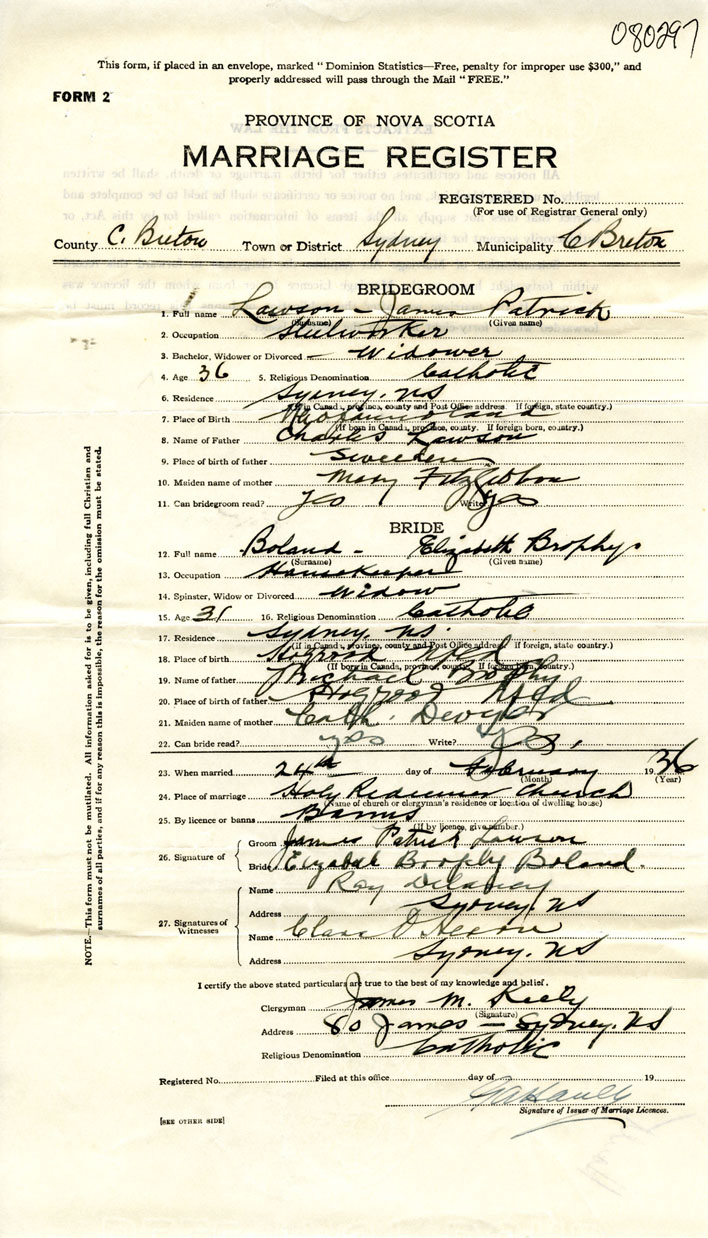 080297
This form, if placed in an envelope, marked "Dominion Statistics—Free, penalty for improper use $300," and
properly addressed will pass through the Mail "FREE."
FORM 2
PROVINCE OF NOVA SCOTIA
MARRIAGE REGISTER
REGISTERED No.
(For use of Registrar General only)
County C. Breton Town or District Sydney Municipality C Breton
BRIDEGROOM
1. Full name Lawson - James Patrick
(Surname) (Given name)
2. Occupation Steelworker
3. Bachelor, Widower or Divorced — Widower
4. Age 36 5. Religious Denomination Catholic
6. Residence Sydney, NS
(If in Canada, province, county and Post Office address. If foreign, state country.)
7. Place of Birth Newfoundland
(If born in Canada, province, county. If foreign born, country.)
8. Name of Father Charles Lawson
9. Place of birth of father Sweeden
10. Maiden name of mother Mary FitzGibbon
11. Can bridegroom read? yes Write? yes
BRIDE
12. Full name Boland - Elizabeth Brophy
(Surname) (Given name)
13. Occupation Housekeeper
14. Spinster, Widow or Divorced Widow
15. Age 31 16. Religious Denomination Catholic
17. Residence Sydney, NS.
(If in Canada, province, county and Post Office address. If foreign, state country.)
18. Place of birth Nfld
(If born in Canada, province, county. If foreign born, country.)
19. Name of father Michael Brophy
20. Place of birth of father Nfld
21. Maiden name of mother Cath.
22. Can bride read? yes Write? yes
23. When married 24th day of February 1936
(Month) (Year)
24. Place of marriage Holy Redeemer Church
(Name of church or clergyman's residence or location of dwelling house)
25. By licence or banns Banns
(If by licence, give number.)
26. Signature of Groom James Patrick Lawson
Bride Brophy Boland.
27. Signatures of Witnesses
Name Roy Delaney
Address Sydney, NS
Name Clara
Address Sydney, NS
I certify the above stated particulars are true to the best of my knowledge and belief.
Clergyman James M. Kiely
(Signature)
Address 80 James — Sydney, NS
Religious Denomination Catholic
Registered No. Filed at this office day of 19
Signature of Issuer of Marriage Licences.
[SEE OTHER SIDE]
NOTE.—This form must not be mutilated. All information asked for is to be given, including full Christian and
surnames of all parties, and if for any reason this is impossible, the reason for the omission must be stated.